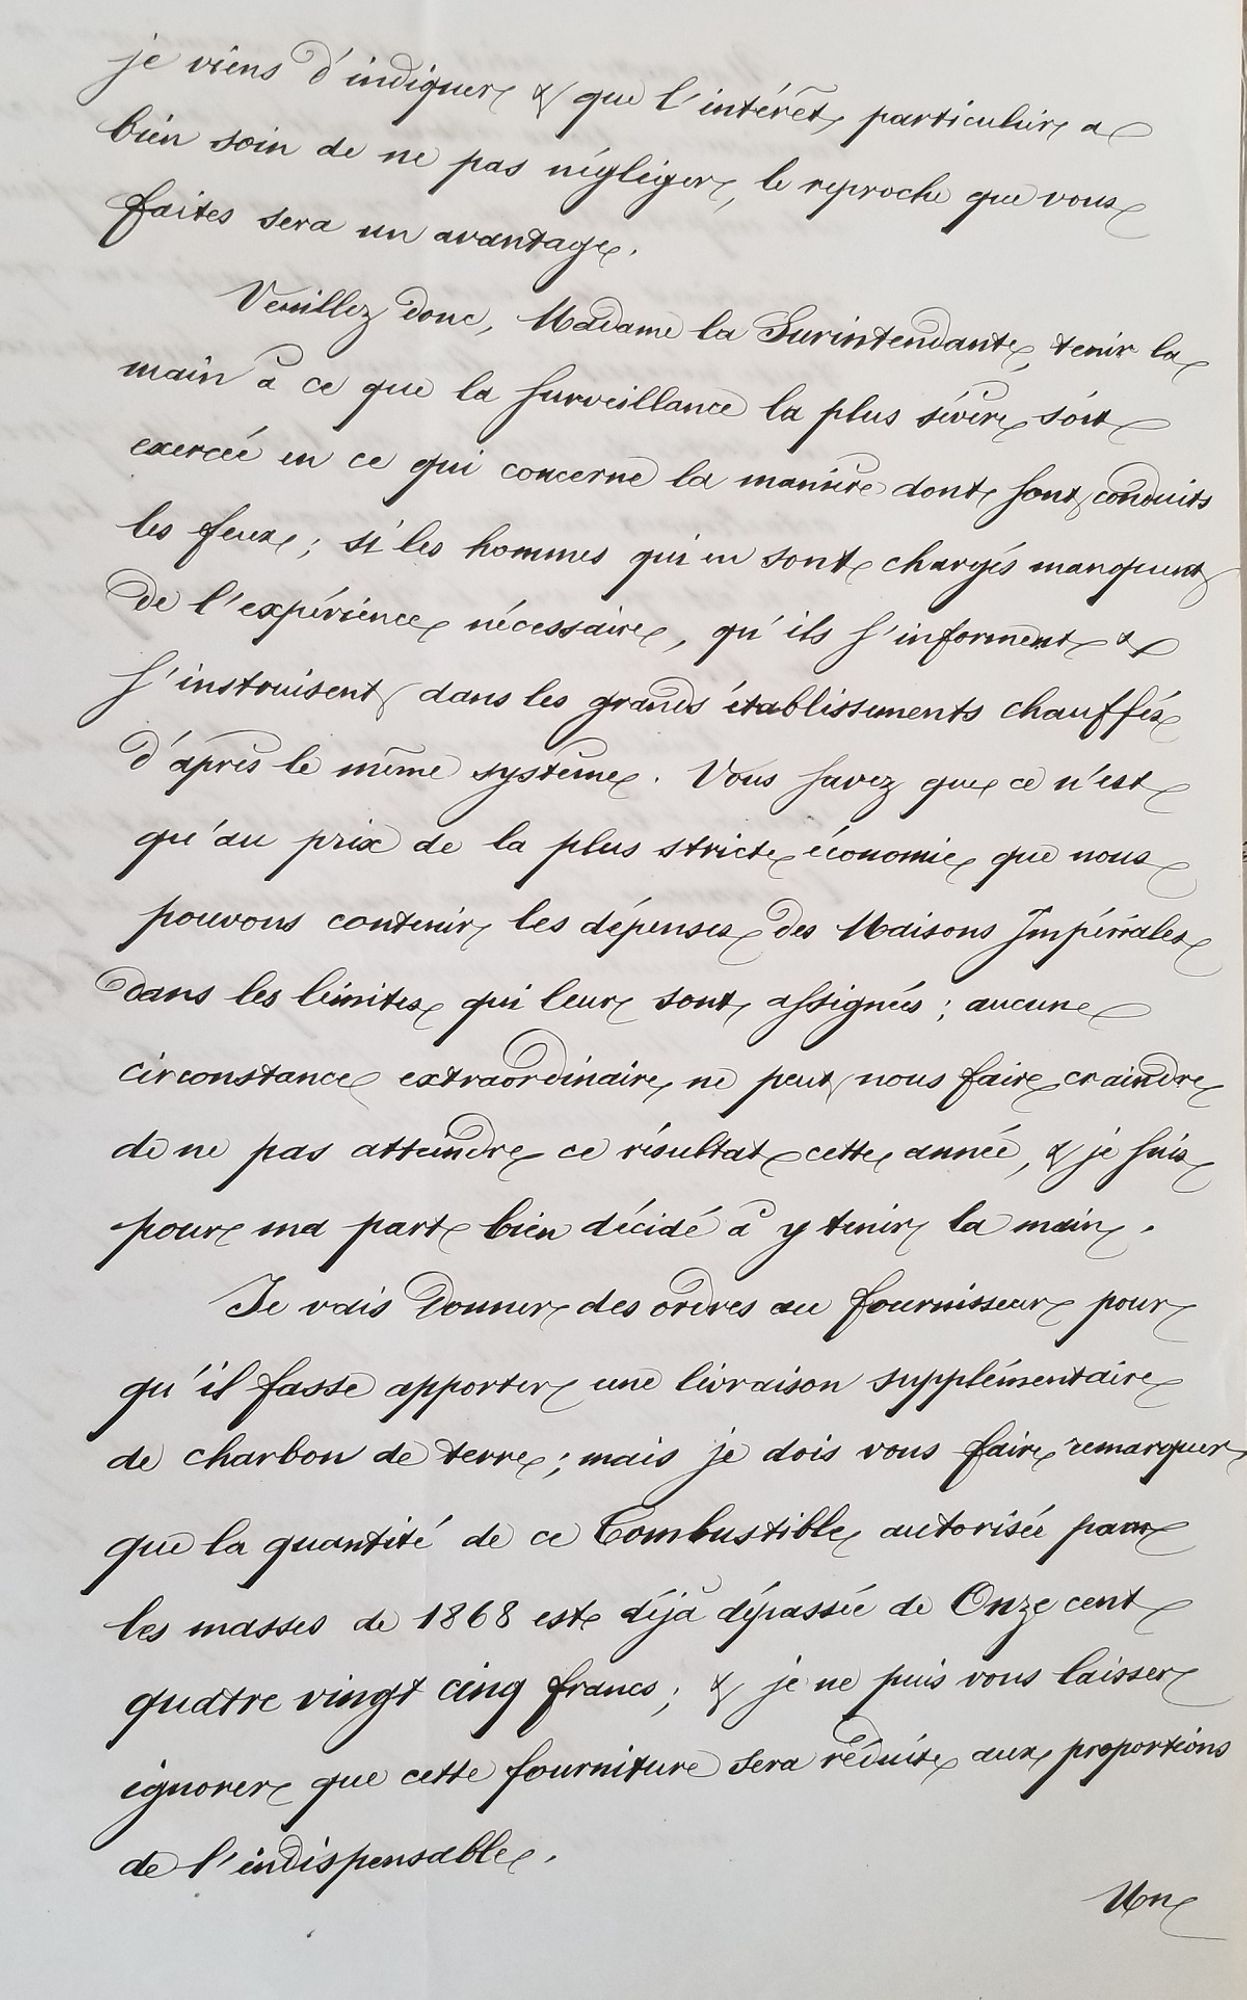 je viens d'indiquer & que l'intérêt particulier a
bien soin de ne pas négliger, le reproche que vous
faites sera un avantage.
Veuillez donc, Madame la Surintendante, tenir la
main à ce que la surveillance la plus sévère soit
exercée en ce qui concerne la manière dont sont conduits
les feux ; si les hommes qui en sont chargés manquent
de l'expérience nécessaire, qu'ils s'informent &
s'instruisent dans les grands établissements chauffés
d'après le même système. Vous savez que ce n'est
qu'au prix de la plus stricte économie que nous
pouvons contenir les dépenses des Maisons Impériales
dans les limites qui leur sont assignées ; aucune
circonstance extraordinaire ne peut nous faire craindre
de ne pas atteindre ce résultat cette année, & je suis
pour ma part bien décidé à y tenir la main.
Je vais donner des ordres au fournisseur pour
qu'il fasse apporter une livraison supplémentaire
de charbon de terre ; mais je dois vous faire remarquer
que la quantité de ce Combustible autorisée par
les masses de 1868 est déjà dépassée de Onze cent
quatre vingt cinq francs ; & je ne puis vous laisser
ignorer que cette fourniture sera réduite aux proportions
de l'indispensable.
Un